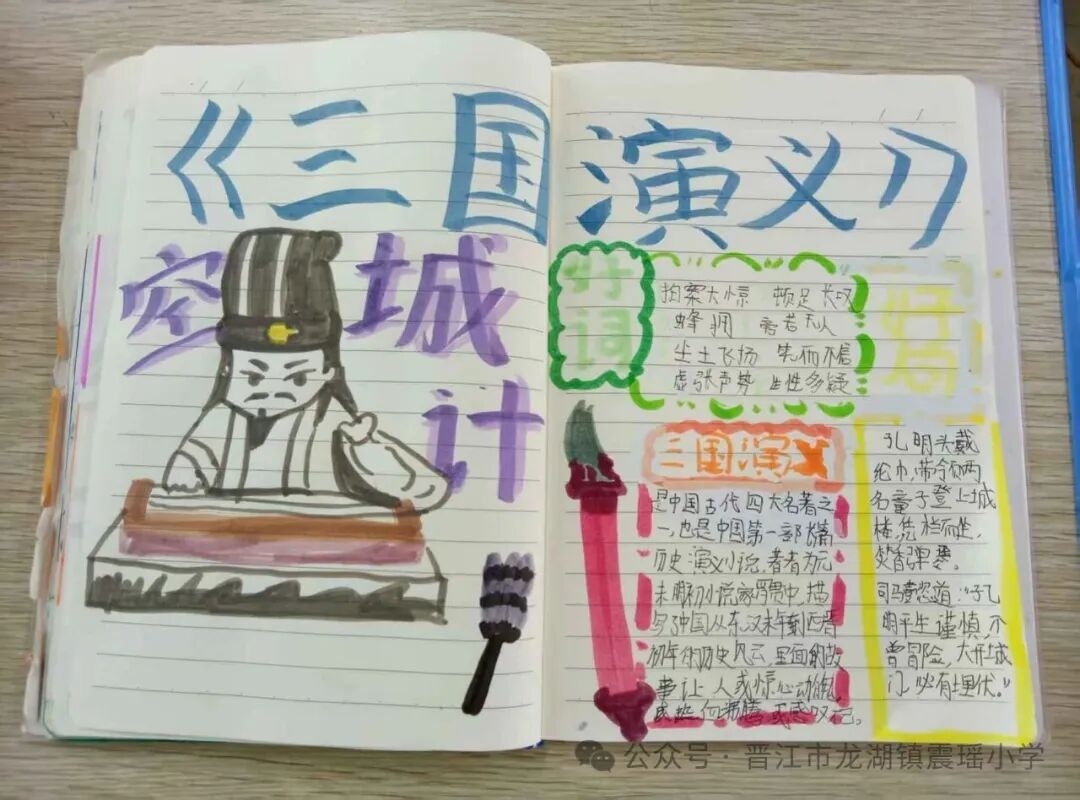 《三国演义》
空城计
好词
拍案大惊 顿足长叹
蜂拥 旁若无人
尘土飞扬 笑而不信
虚张声势 生性多疑
三国演义
是中国古代四大名著之
一，也是中国第一部长篇
历史演义小说，著者为元
末明初小说家罗贯中，描
写了中国从东汉末年到西晋
初年的历史风云，里面的故
事让人或惊心动魄，
或感叹不已。
好句
孔明头戴
纶巾，带领两
名童子登上城
楼，凭栏而坐，
焚香弹琴。
司马懿忽道："孔
明平生谨慎，不
曾冒险，大开城
门，必有埋伏。"
公众号·晋江市龙湖镇震瑶小学